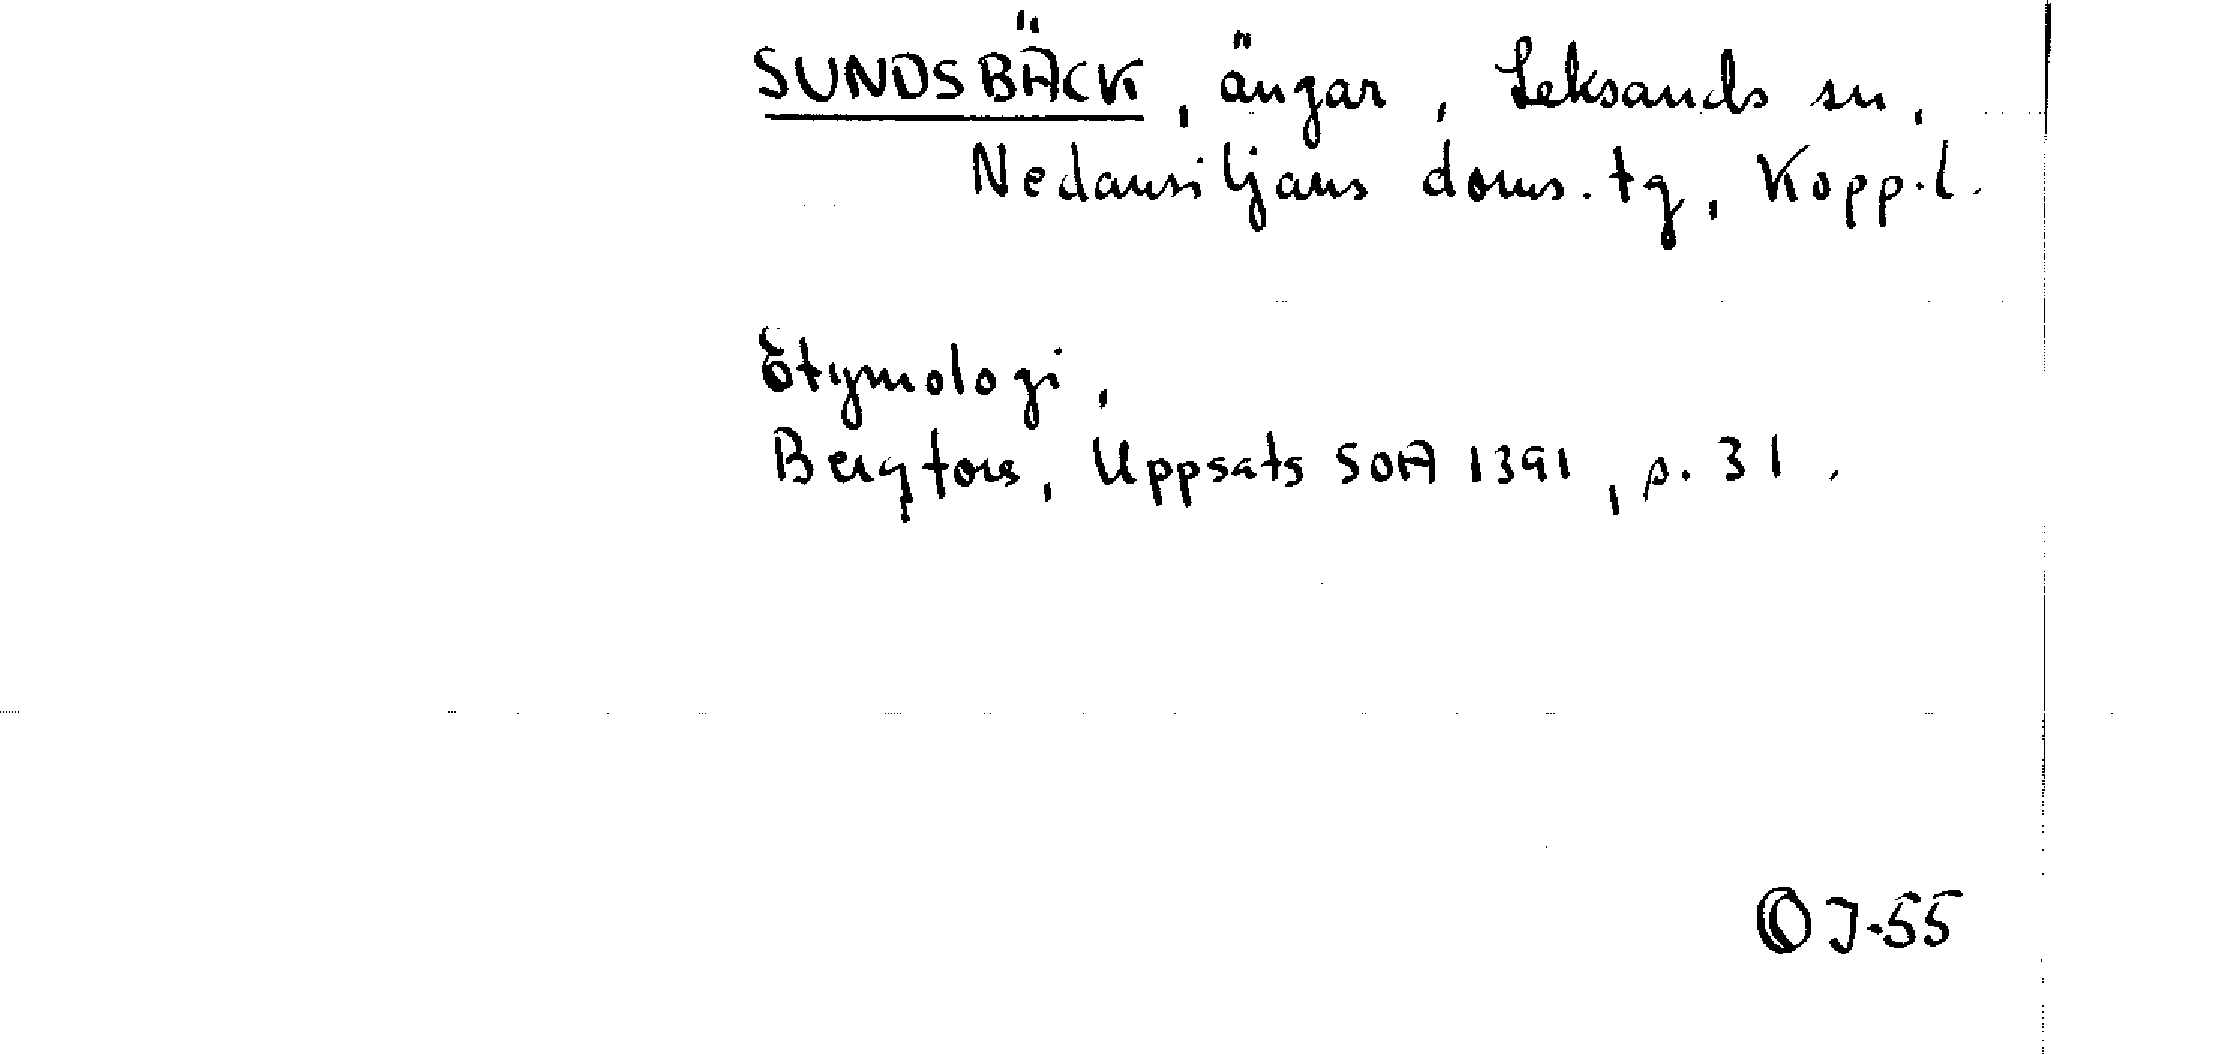 SUNDSBÄCK, ängar, Leksands sn,
Nedansiljans doms. tg, Kopp.l.
Etymologi,
Bergfors, Uppsats SOA 1391, s. 31.
J-55